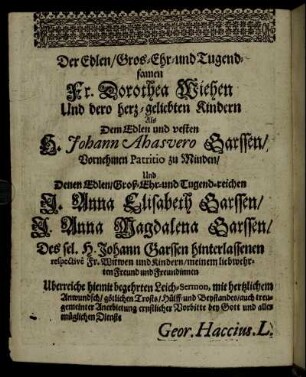 Der Edlen/Gros-Ehr-und Tugend-
samen
Fr. Dorothea Wiehen
Und dero hertz-geliebten Kindern
Als
Dem Edlen und vesten
H. Johann Ahasvero Garssen/
Vornehmen Patritio zu Minden/
Und
Denen Edlen/Groß-Ehr-und Tugend-reichen
J. Anna Elisabeth Garssen/
J. Anna Magdalena Garssen/
Des sel. H. Johann Garssen hinterlassenen
respectivè Fr. Witwen und Kindern/meinem liebwehr-
ten Freund und Freundinnen
Uberreiche hiemit begehrten Leich-Sermon, mit hertzlichem
Anwundsch/götlichen Trosts/Hülff und Beystandes/auch treu-
gemeinter Anerbietung ernstlicher Vorbitte bey Gott und alles
müglichen Dienst
Geor. Haccius. L.